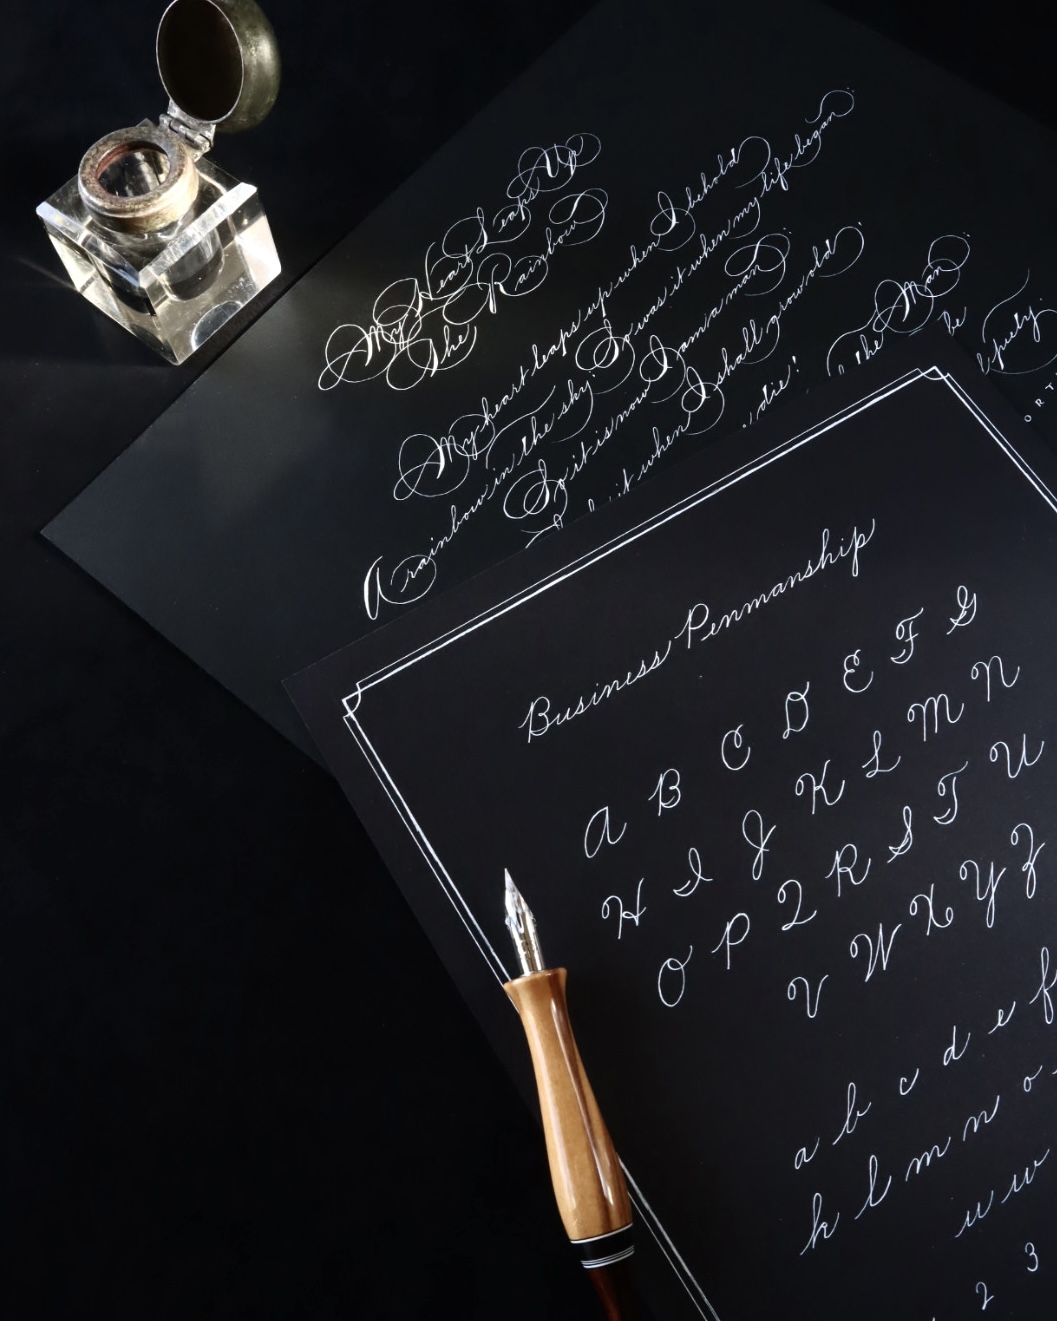 My Heart Leaps Up
The Rainbow
My heart leaps up when I behold
A rainbow in the sky:
So was it when my life began;
So it is now I am a man;
be it when I shall grow old,
die!
the Man;
be
piety.
Business Penmanship
A B C D E F G
H I J K L M N
O P Q R S T U
V W X Y Z
a b c d e f
k l m n o
u w
2 3